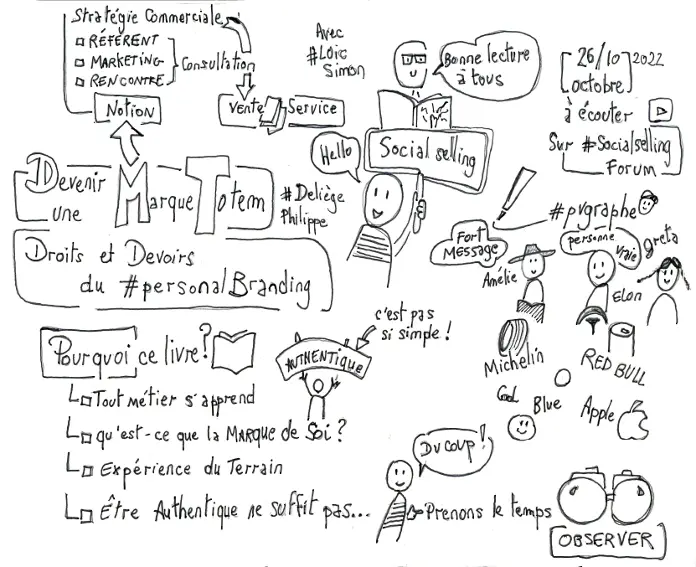 Stratégie Commerciale
RÉFÉRENT
MARKETING
RENCONTRE
Consultation
NOTION
VENTE
Service
Avec
#Loïc
Simon
Bonne lecture
à tous
26/10 2022
octobre
à écouter
Sur #Socialselling
Forum
Hello
Social selling
Devenir
une
Marque Totem
#Deliège
Philippe
Droits et Devoirs
du #personal Branding
#pvgraphe
FORT
MESSAGE
Amélie
personne
vraie
greta
ELON
Pourquoi ce livre?
c'est pas
si simple!
AUTHENTIQUE
Tout métier s'apprend
qu'est-ce que la MARQUE de Soi?
Expérience du Terrain
Être Authentique ne suffit pas...
Michelin
RED BULL
Cool
Blue
Apple
DU COUP!
Prenons le temps
OBSERVER